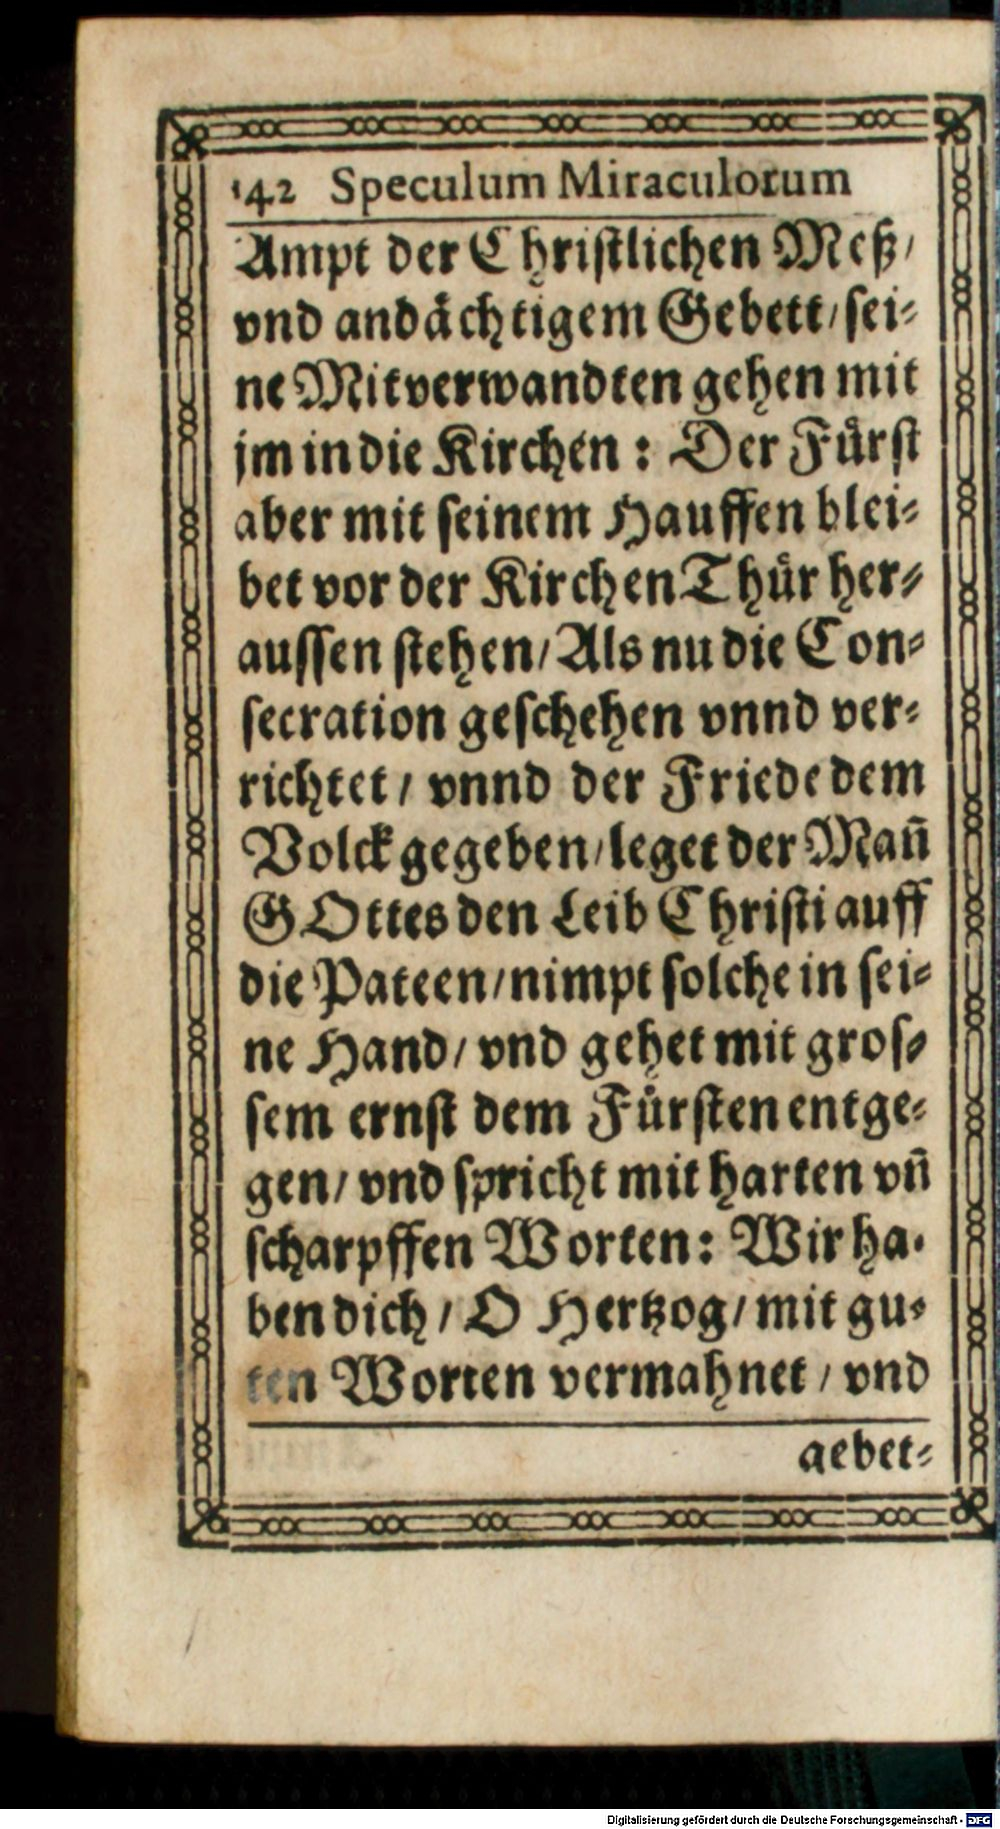 142 Speculum Miraculorum
Ampt der Christlichen Meß/
vnd andåchtigem Gebett/sei-
ne Mitverwandten gehen mit
jm in die Kirchen: Der Fůrst
aber mit seinem Hauffen blei-
bet vor der Kirchen Thůr her-
aussen stehen/Als nu die Con-
secration geschehen vnnd ver-
richtet/ vnnd der Friede dem
Volck gegeben/leget der Man̄
GOttes den Leib Christi auff
die Pateen/nimpt solche in sei-
ne Hand/ vnd gehet mit gros-
sem ernst dem Fůrsten entge-
gen/ vnd spricht mit harten vn̄
scharpffen Worten: Wir ha-
ben dich/ O Hertzog/ mit gu-
ten Worten vermahnet/ vnd
gebet-
Digitalisierung gefördert durch die Deutsche Forschungsgemeinschaft - DFG